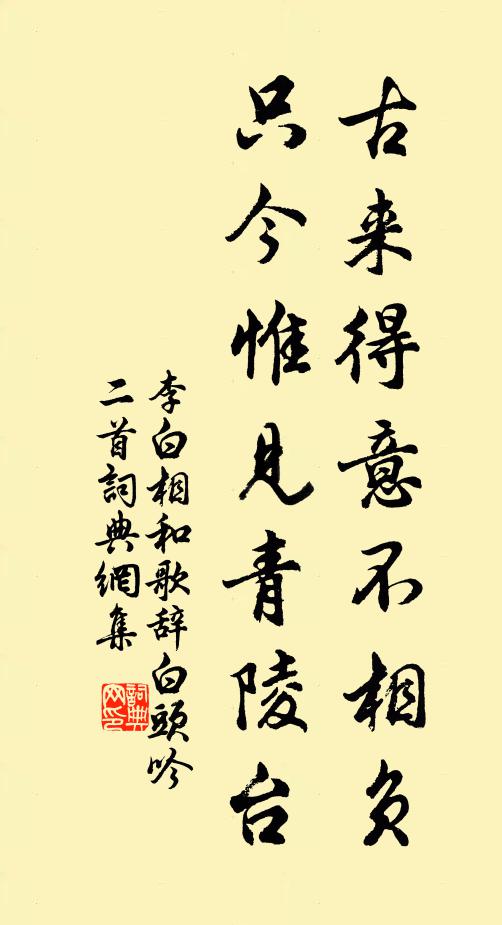 古来得意不相负
只今惟见青陵台
李白相和歌辞白頭吟
二首詞典網集
詞典网印